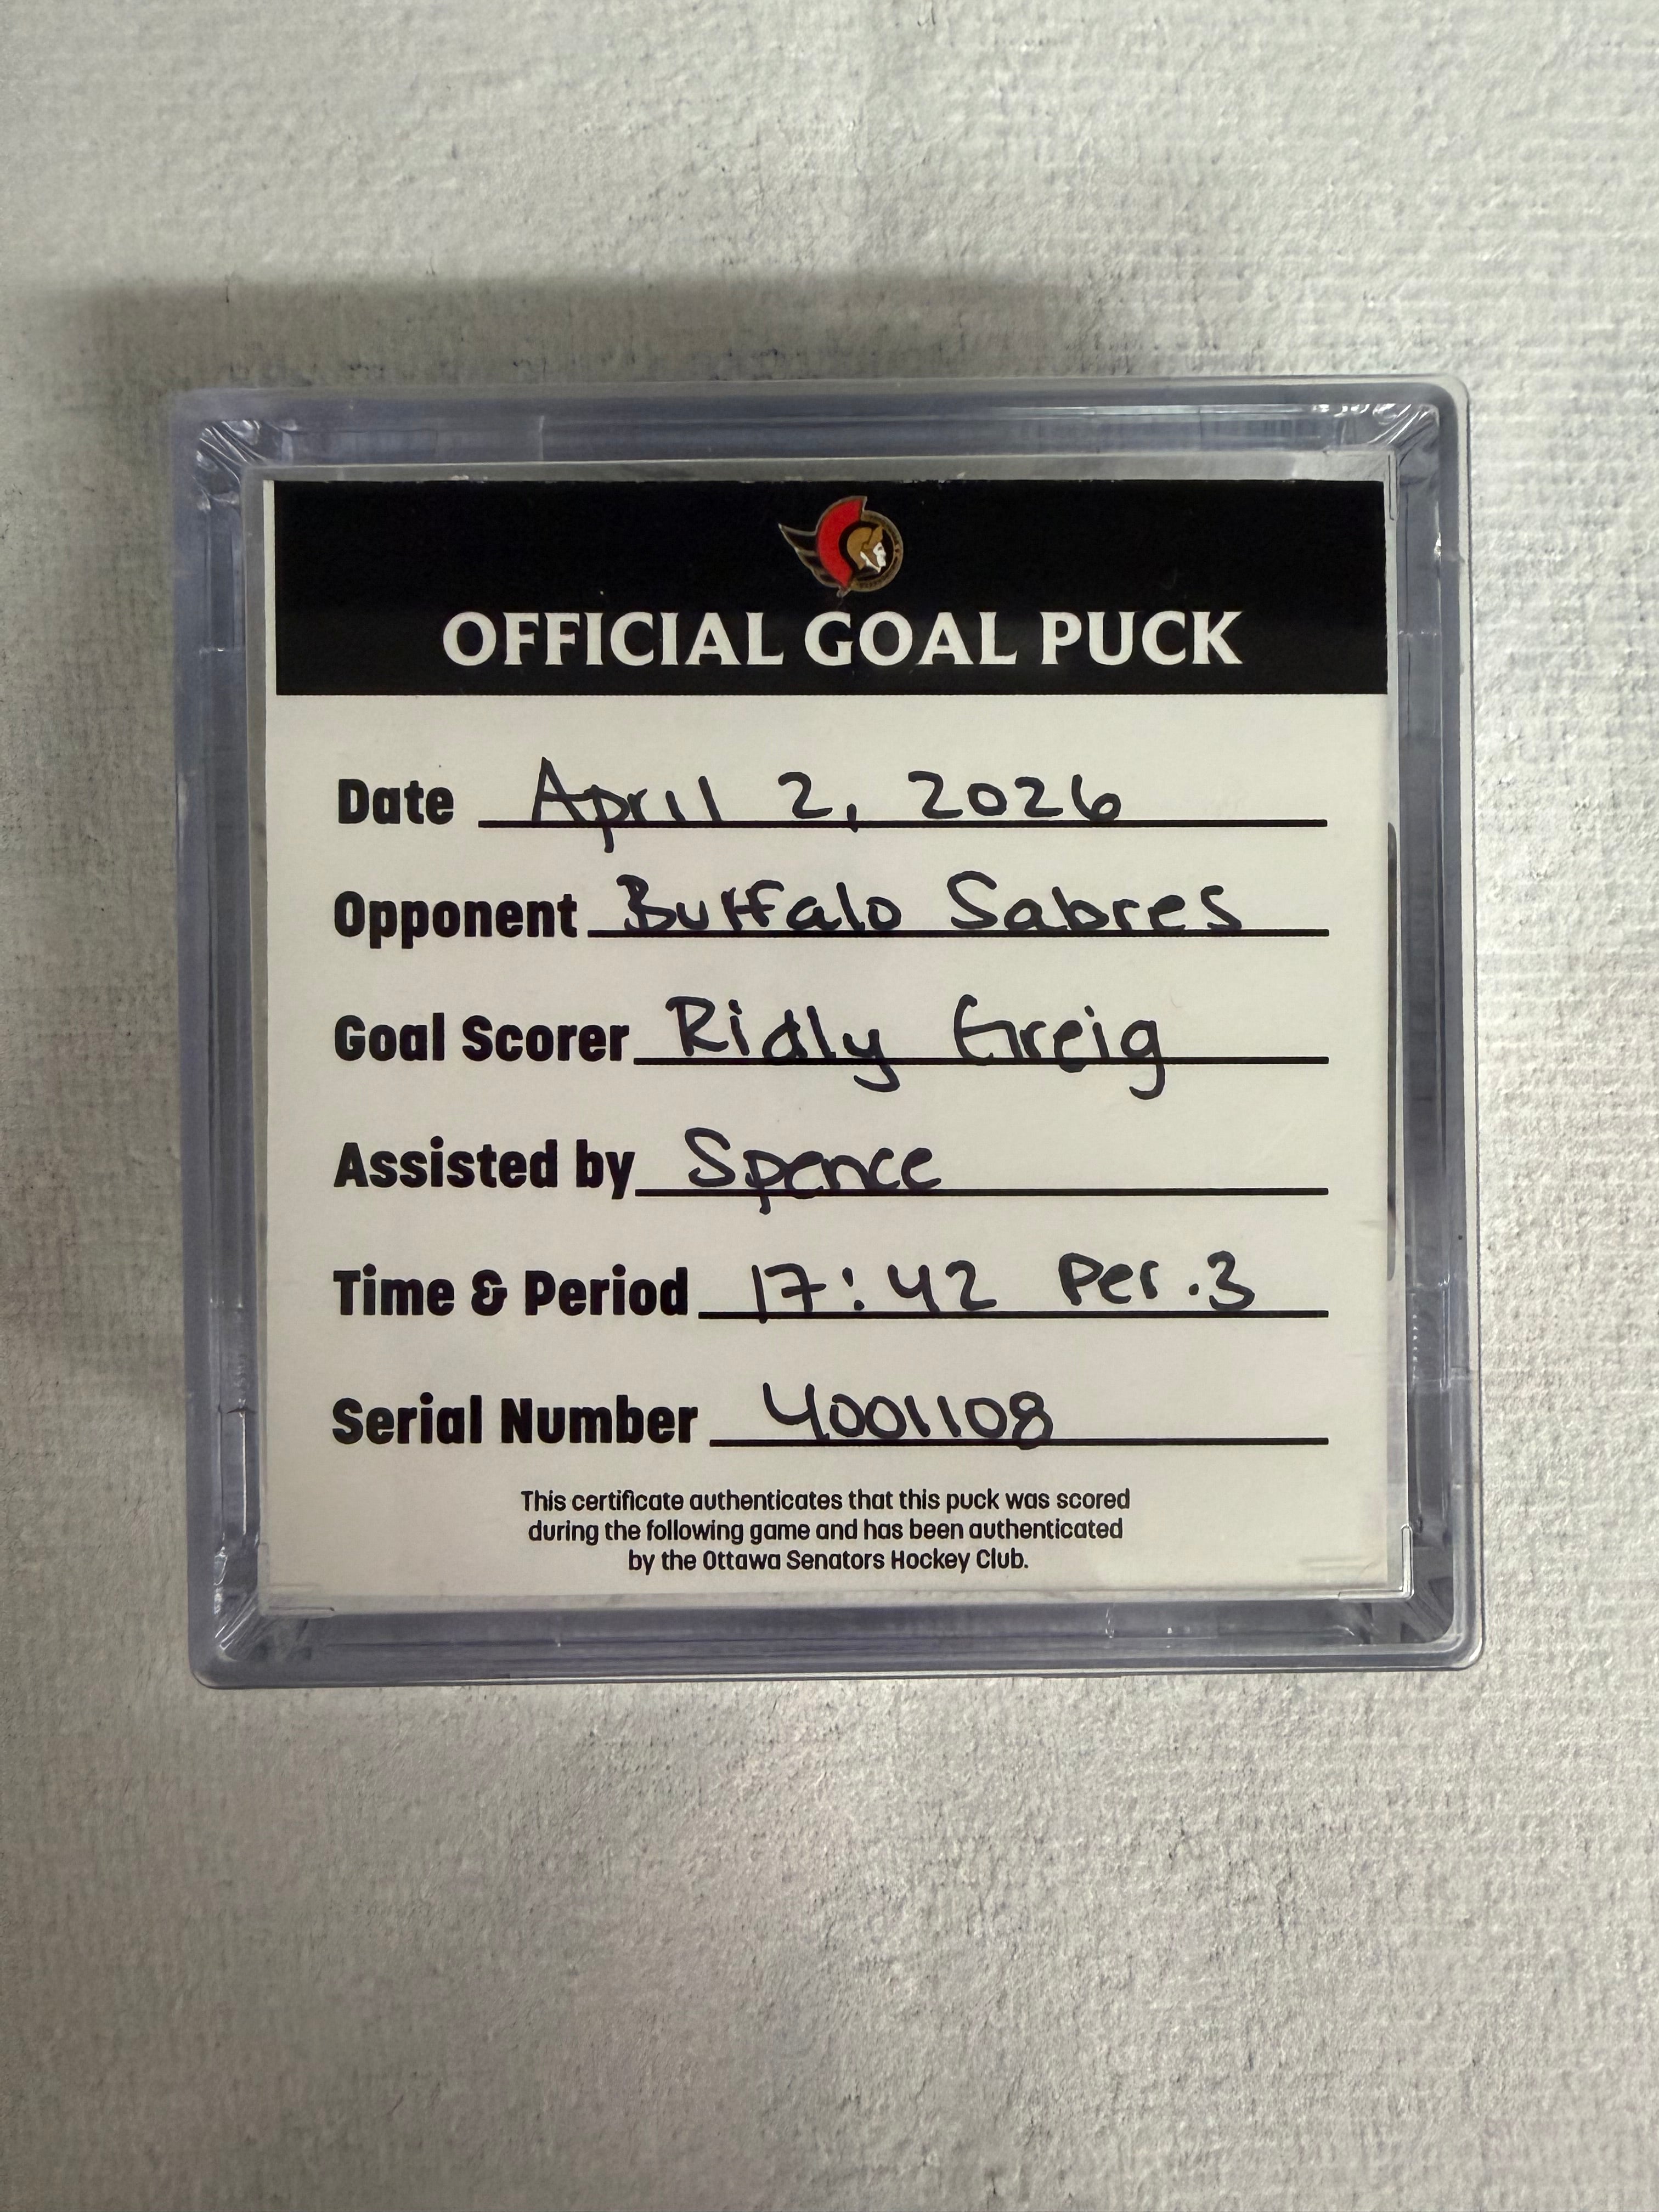 OFFICIAL GOAL PUCK
Date April 2, 2026
Opponent Buffalo Sabres
Goal Scorer Ridly Greig
Assisted by Spence
Time & Period 17:42 Per.3
Serial Number 4001108
This certificate authenticates that this puck was scored
during the following game and has been authenticated
by the Ottawa Senators Hockey Club.